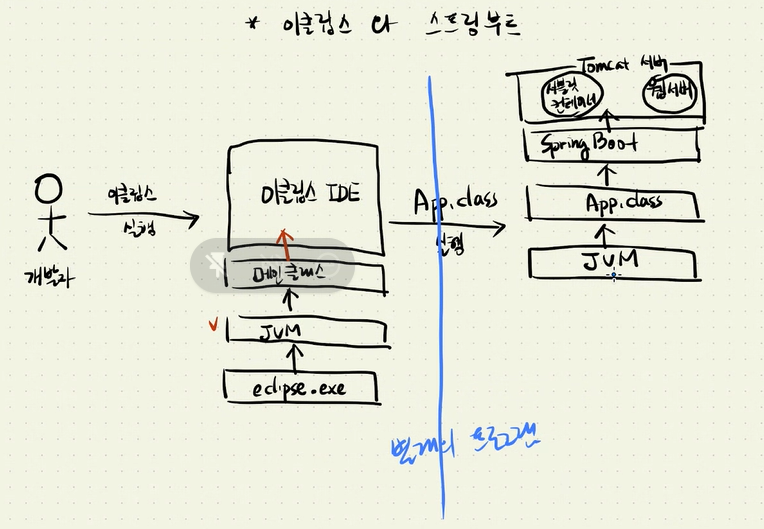 * 이클립스 와 스프링부트
개발자
이클립스
실행
이클립스 IDE
메인 클래스
JVM
eclipse.exe
App.class
실행
별개의 프로그램
Tomcat 서버
서블릿
컨테이너
웹서버
Spring Boot
App.class
JVM